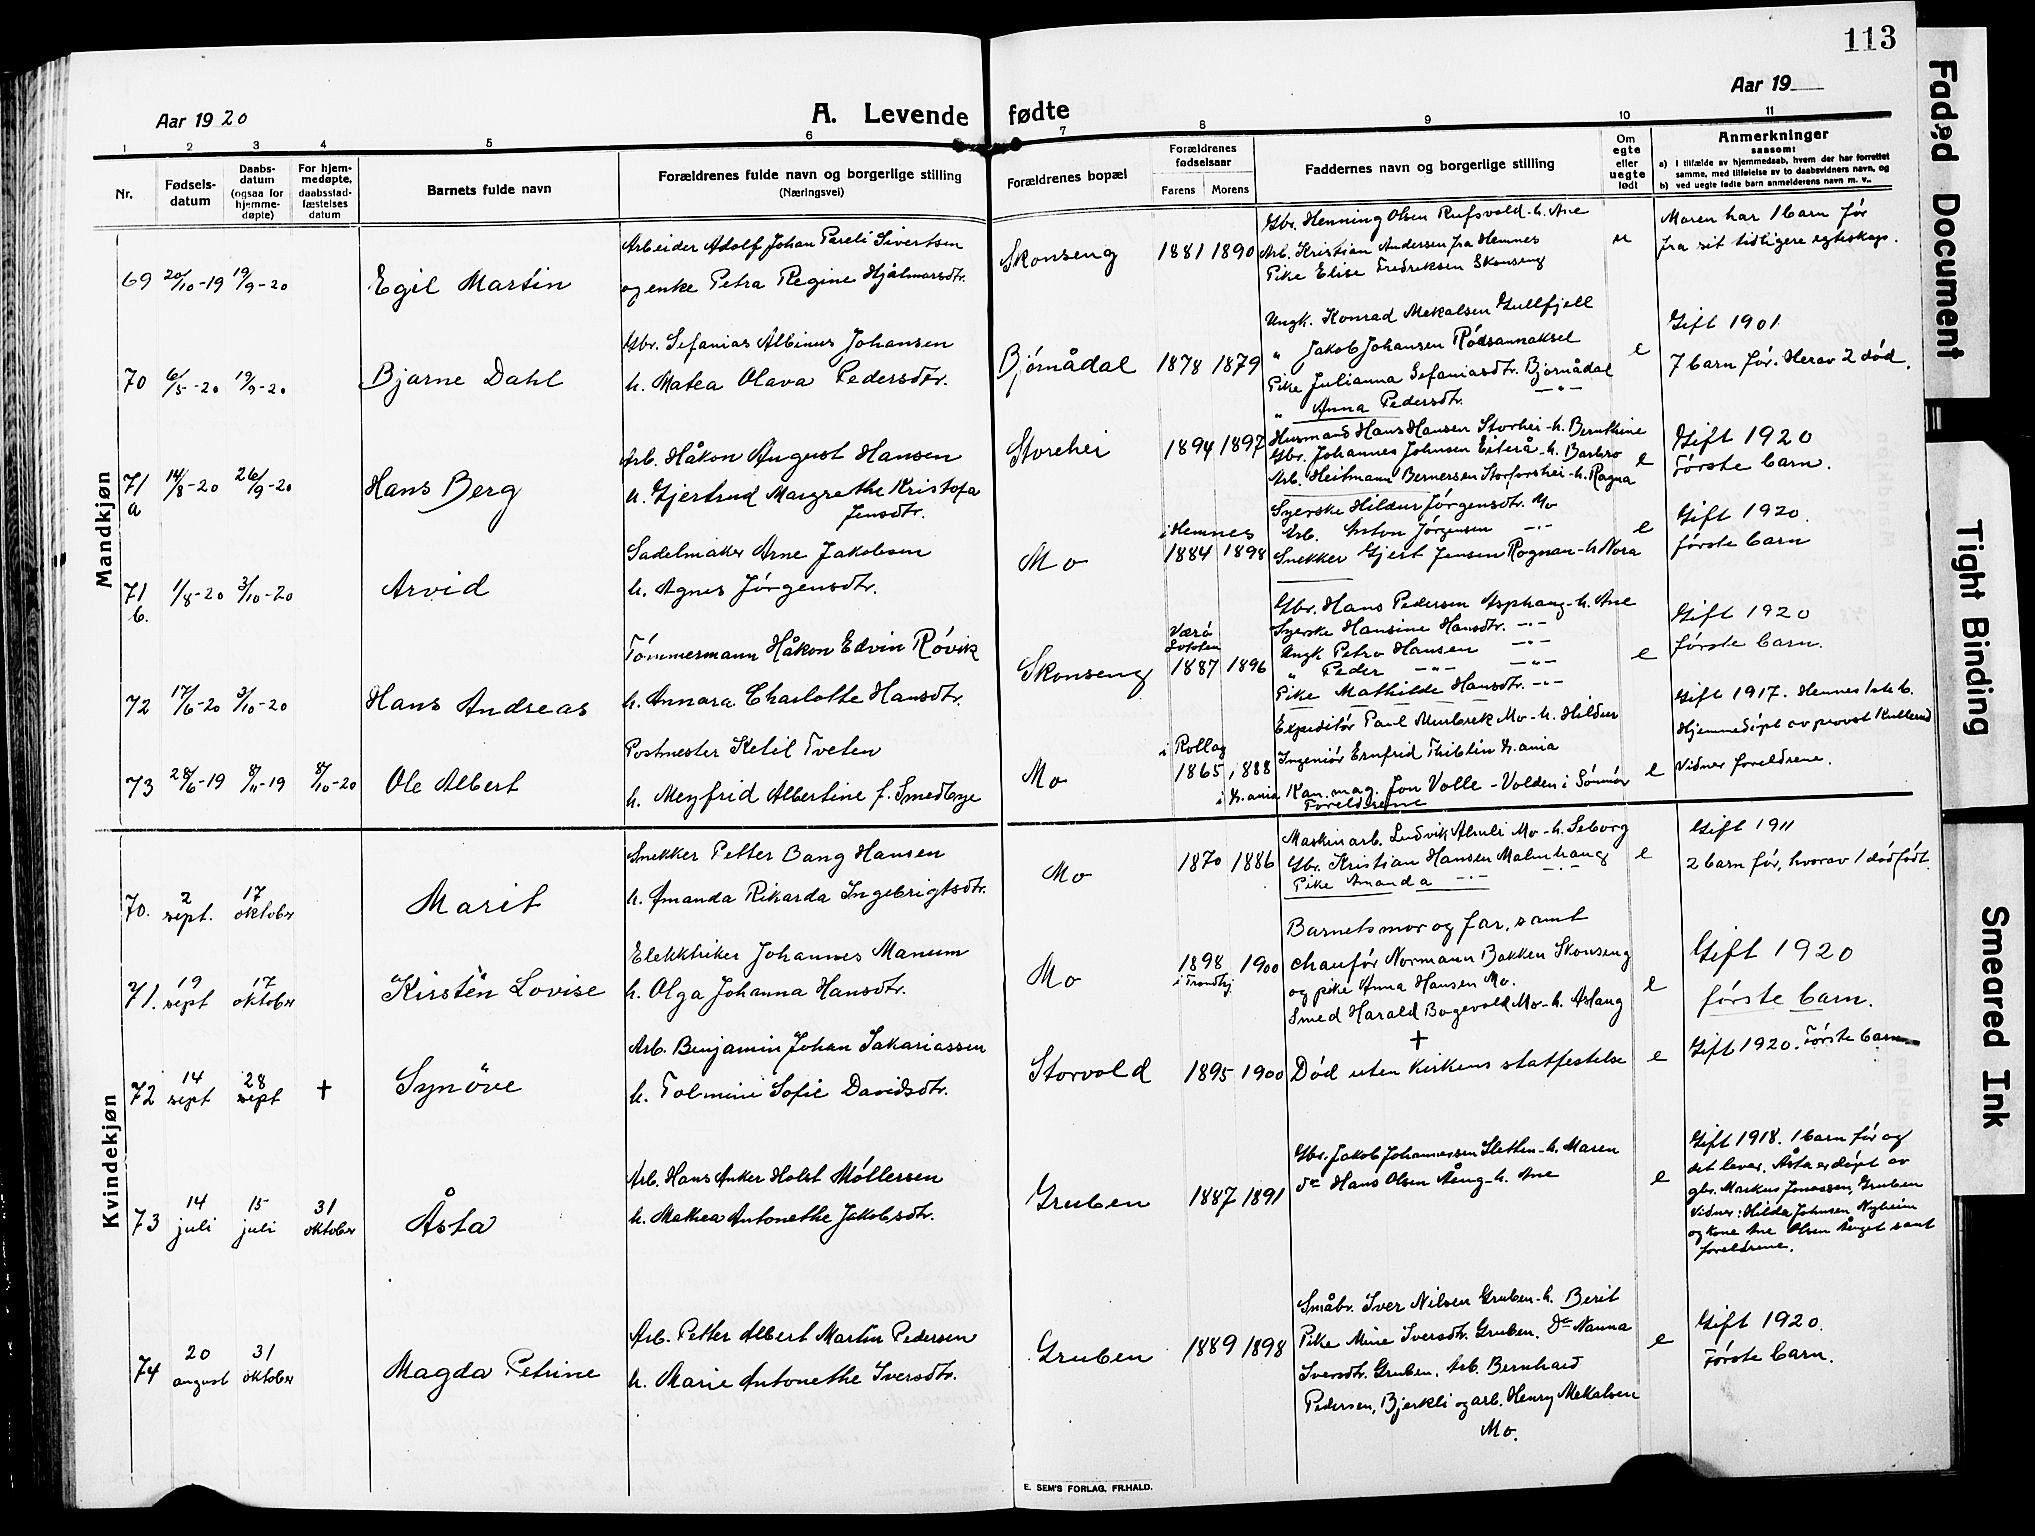 113
Aar 1920
A. Levende fødte
Aar 19
1 2 3 4 5 6 7 8 9 10 11
Nr.
Fødsels-
datum
Daabs-
datum
(ogsaa for
hjemme-
døpte)
For hjem-
medøpte,
daabsstad-
fæstelses
datum
Barnets fulde navn
Forældrenes fulde navn og borgerlige stilling
(Næringsvei)
Forældrenes bopæl
Forældrenes
fødselsaar
Farens Morens
Faddernes navn og borgerlige stilling
Om
egte
eller
uegte
født
Anmerkninger
saasom:
a) I tilfælde av hjemmedaab, hvem der har forrettet
samme, med tilføielse av to daabsvidners navn, og
b) ved uegte fødte barn anmelderens navn m. v..
Mandkjøn
69 20/10-19 19/9-20
Egil Martin
Arbeider Adolf Johan Pareli Sivertsen
og enke Petra Regine Hjalmarsdtr.
Skonseng
1881 1890
Gbr. Henning Olsen Rufsvold - h. Ane
Arb. Kristian Andersen fra Hemnes
Pike Elise Fredriksen Skonseng
u
Moren har 1 barn før
fra sit tidligere egteskap.
70 6/5-20 19/9-20
Bjarne Dahl
Gbr. Sefanias Albinus Johansen
h. Matea Olava Pedersdtr.
Bjørnådal
1878 1879
Ungk. Konrad Mekalsen Gullfjell
" Jakob Johansen Rødsannaksel
Pike Julianna Sefaniasdtr. Bjørnådal
" Anna Pedersdtr. -"-
e
Gift 1901.
7 barn før. Herav 2 død.
71 a 14/8-20 26/9-20
Hans Berg
Arb. Håkon August Hansen
h. Gjertrud Margrethe Kristofa
Jensdtr.
Storehei
1894 1897
Husmand Hans Hansen Storhei - h. Bernthine
Gbr. Johannes Johnsen Eiterå - h. Barbro
Arb. Heitmann Bernersen Storforshei - h. Ragna
e
Gift 1920
Første barn.
71 b. 1/8-20 3/10-20
Arvid
Sadelmaker Arne Jakobsen
h. Agnes Jørgensdtr.
Mo
i Hemnes
1884 1898
Syerske Hildur Jørgensdtr. Mo
Arb. Anton Jørgensen -"-
Snekker Gjert Jensen Rognan - h. Nora
e
Gift 1920.
første barn
72 17/6-20 3/10-20
Hans Andreas
Tømmermann Håkon Edvin Røvik
h. Annara Charlotte Hansdtr.
Skonseng
Værö
Lofoten
1887 1896
Gbr. Hans Pedersen Asphaug - h. Ane
Syerske Hansine Hansdtr. -"-
Ungk. Petro Hansen -"-
" Peder -"- -"-
Pike Mathilde Hansdtr. -"-
e
Gift 1920
første barn.
73 28/6-19 8/11-19 8/10-20
Ole Albert
Postmester Ketil Tveten
h. Meyfrid Albertine f. Smedbye
Mo
i Rollag
1865 1888
i Kr.ania
Expeditør Paul Meesbrek Mo - h. Hildur
Ingeniør Ernfrid Thiblin Kr.ania
Kan. mag. Jon Volle - Volden i Sønmør
Foreldrene
e
Gift 1917. Hemnes 1ste b.
Hjemmedøpt av provst Kullerud
Vidner foreldrene.
Kvindekjøn
70. 2 sept. 17 oktober
Marit
Snekker Petter Bang Hansen
h. Amanda Rikarda Ingebrigtsdtr.
Mo
1870 1886
Maskinarb. Ludvik Alsuli Mo - h. Seborg
Gbr. Kristian Hansen Malmhaug
Pike Amanda -"- -"-
e
Gift 1911
2 barn før, hvorav 1 dødfødt.
71. 19 sept 17 oktober
Kirsten Lovise
Elektriker Johannes Manum
h. Olga Johanna Hansdtr.
Mo
1898 1900
i Trondhj
Barnets mor og far, samt
chaufør Normann Bakken Skonseng
og pike Anna Hansen Mo.
Smed Harald Bogevold Mo - h. Aslaug
e
Gift 1920
første barn.
72 14 sept 28 sept †
Synöve
Arb. Benjamin Johan Sakariassen
h. Tolmine Sofie Davidsdtr.
Storvold
1895 1900
†
Död uten kirkens statfestelse
e
Gift 1920. Første barn
73 14 juli 15 juli 31 oktober
Åsta
Arb. Hans Anker Holst Möllersen
h. Mathea Antonethe Jakobsdtr.
Gruben
1887 1891
Gbr. Jakob Johannessen Sletten - h. Maren
do Hans Olsen Aeng - h. Ane
e
Gift 1918. 1 barn før og
det lever. Åsta er døpt av
gbr. Markus Jonassen, Gruben
Vidner: Hilda Johnsen Nyheim
og kone Ane Olsen Ånget samt
foreldrene.
74 20 august 31 oktober
Magda Petrine
Arb. Petter Albert Martin Pedersen
h. Marie Antonethe Iversdtr.
Gruben
1889 1898
Småbr. Iver Nilsen Gruben - h. Berit
Pike Mine Iversdtr. Gruben. do Nanna
Iversdtr. Gruben. Arb. Bernhard
Pedersen, Bjerkli og arb. Henry Mekalsen
Mo.
e
Gift 1920.
Første barn.
E. SEM'S FORLAG, FR.HALD.
Faded Document
Tight Binding
Smeared Ink